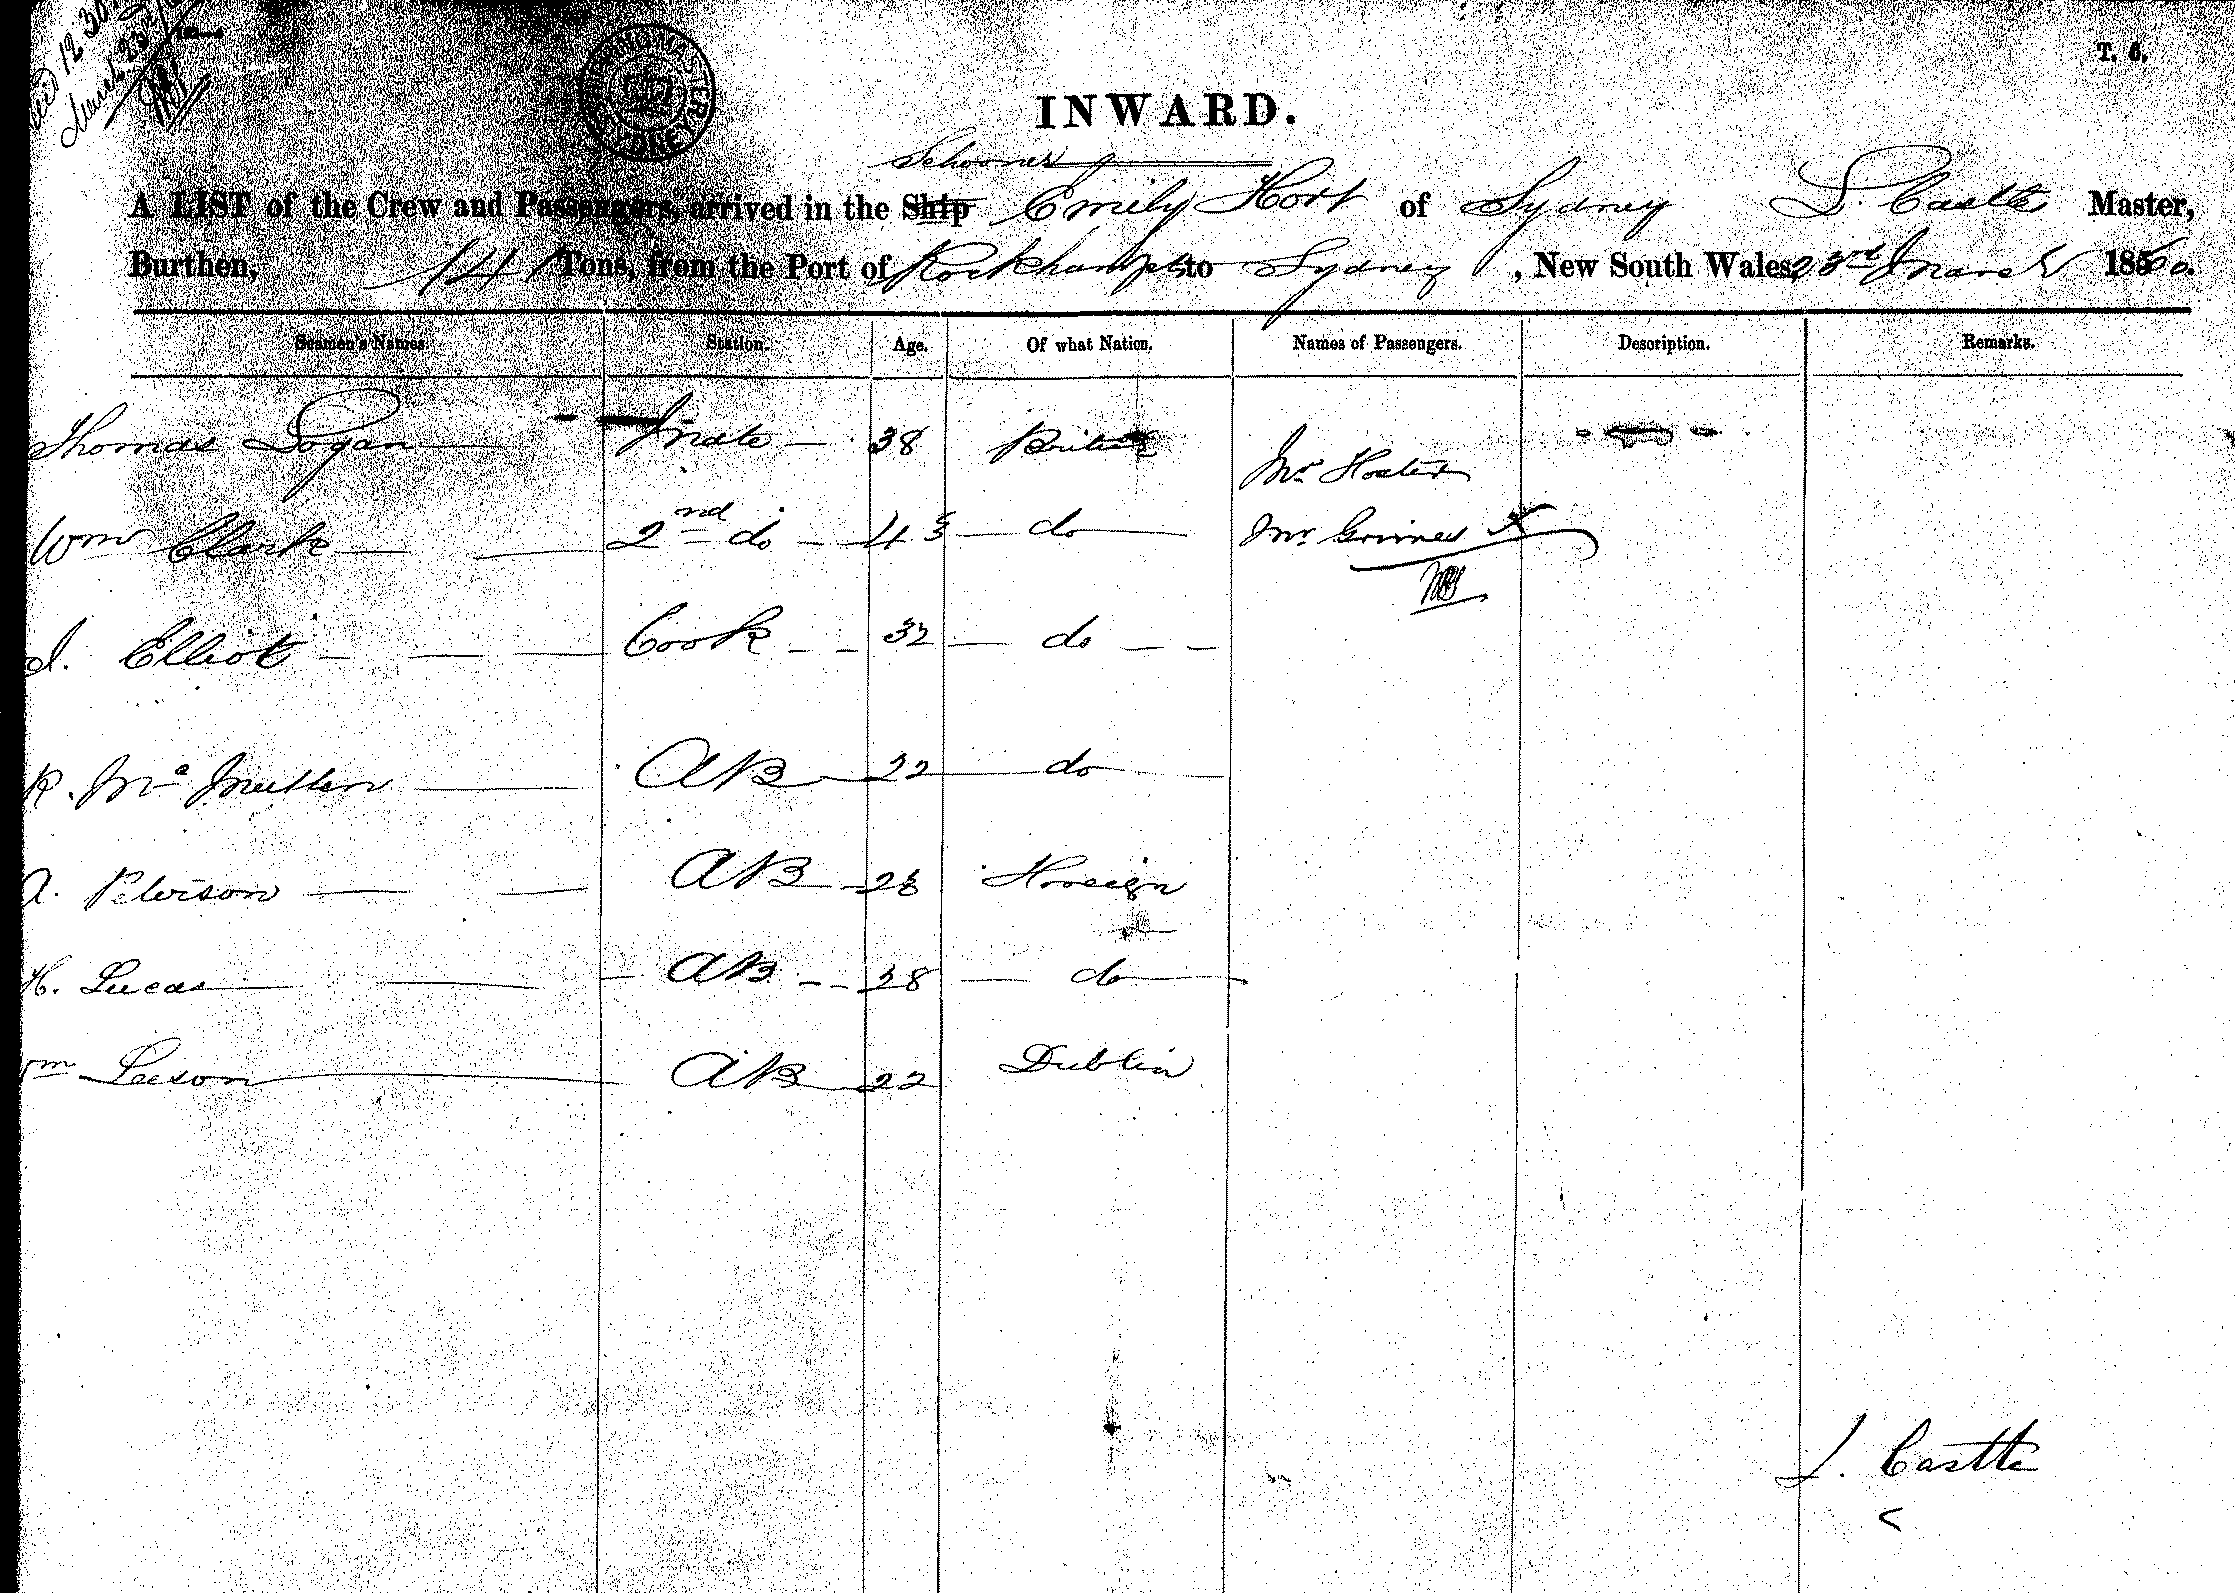 T. 6.
12 30
March 23
INWARD.
Schooner
A LIST of the Crew and Passengers, arrived in the Ship Emily Hort of Sydney L. Castle Master,
Burthen, 141 Tons, from the Port of Rockhampt to Sydney, New South Wales 23rd March 1860.
Seamen's Names. Station. Age. Of what Nation. Names of Passengers. Description. Remarks.
Thomas Logan Mate 38 British
Mr Hoster
Wm Clark 2nd do 43 do Mr Grimes
Elliot Cook 32 do
R. Mc Mullen AB 22 do
A. Peterson AB 28 Foreign
H. Lucas AB 38 do
Wm Leeson AB 22 Dublin
L. Castle